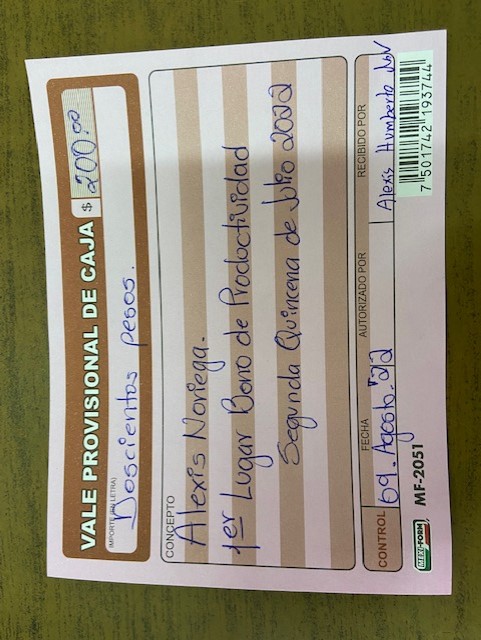 VALE PROVISIONAL DE CAJA $ 200.00
IMPORTE (EN LETRA)
Doscientos pesos.
CONCEPTO
Alexis Noriega.
1er Lugar Bono de Productividad
Segunda Quincena de Julio 2022
CONTROL FECHA AUTORIZADO POR RECIBIDO POR
09. Agosto. '22 Alexis Humberto
MEXI-FORM MF-2051
7 501742 193744